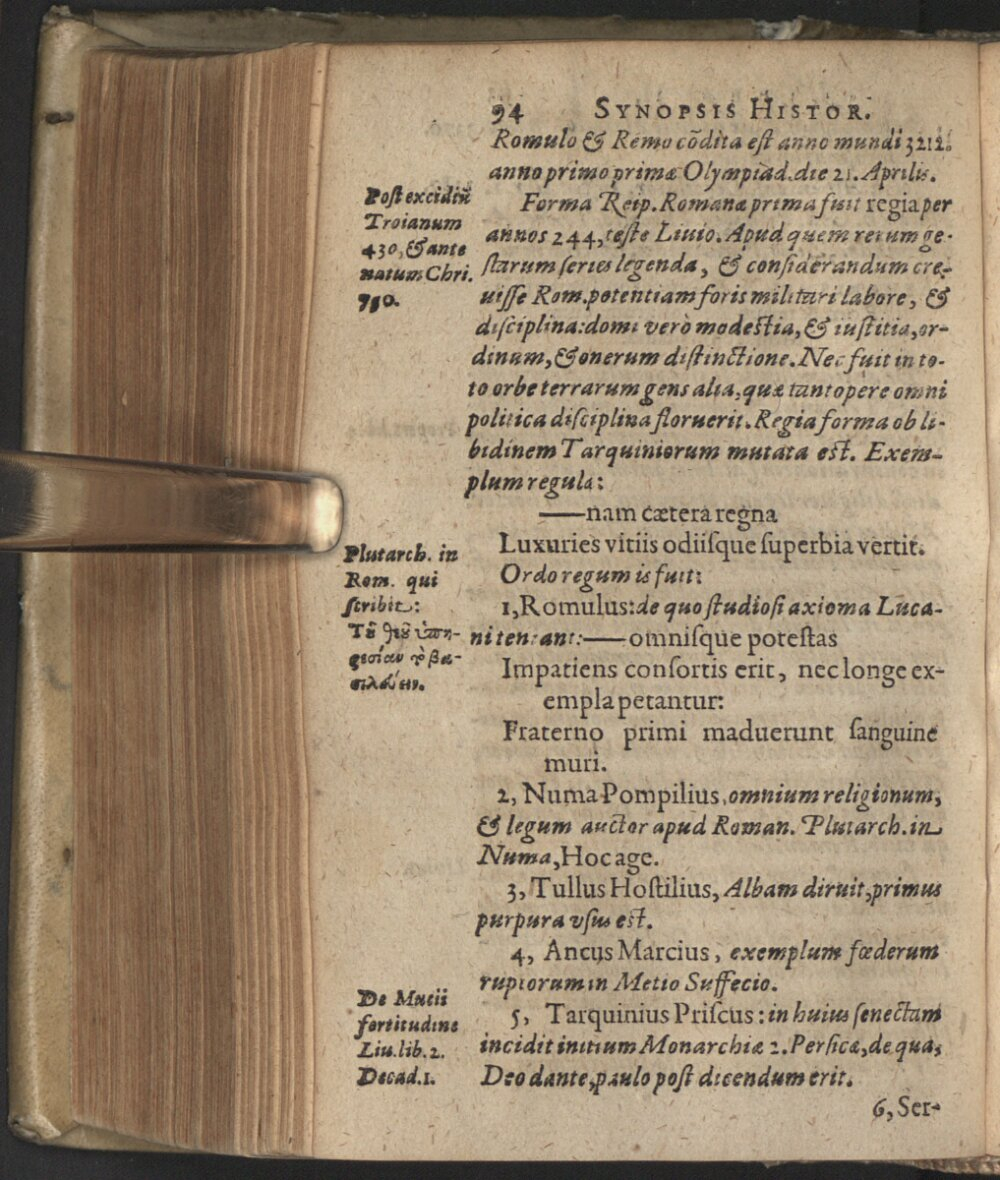 94 SYNOPSIS HISTOR.
Romulo & Remo cōdita est anno mundi 3212.
anno primo primæ Olympiad. die 21. Aprilis.
Forma Reip. Romanæ prima fuit regia per
annos 244, teste Liuio. Apud quem rerum ge-
starum series legenda, & considerandum cre-
uisse Rom. potentiam foris militari labore, &
disciplina: domi verò modestia, & iustitia, or-
dinum, & onerum distinctione. Nec fuit in to-
to orbe terrarum gens alia, quæ tantopere omni
politica disciplina floruerit. Regia forma ob li-
bidinem Tarquiniorum mutata est. Exem-
plum regula:
——nam cætera regna
Luxuries vitiis odiisque superbia vertit.
Ordo regum is fuit:
1, Romulus: de quo studiosi axioma Luca-
ni teneant:——omnisque potestas
Impatiens consortis erit, nec longe ex-
empla petantur:
Fraterno primi maduerunt sanguine
muri.
2, Numa Pompilius, omnium religionum,
& legum auctor apud Roman. Plutarch. in
Numa, Hoc age.
3, Tullus Hostilius, Albam diruit, primus
purpura vsus est.
4, Ancus Marcius, exemplum fœderum
ruptorum in Metio Suffecio.
5, Tarquinius Priscus: in huius senectam
incidit initium Monarchiæ 2. Persicæ, de qua,
Deo dante, paulo post dicendum erit.
6, Ser-
Post excidiū
Troianum
430, & ante
natum Chri.
750.
Plutarch. in
Rom. qui
scribit:
Τȣ͂ θεȣ͂ ὑπη-
ρεσίαν τὸ βα-
σιλεύειν.
De Mucii
fortitudine
Liu. lib. 2.
Decad. 1.